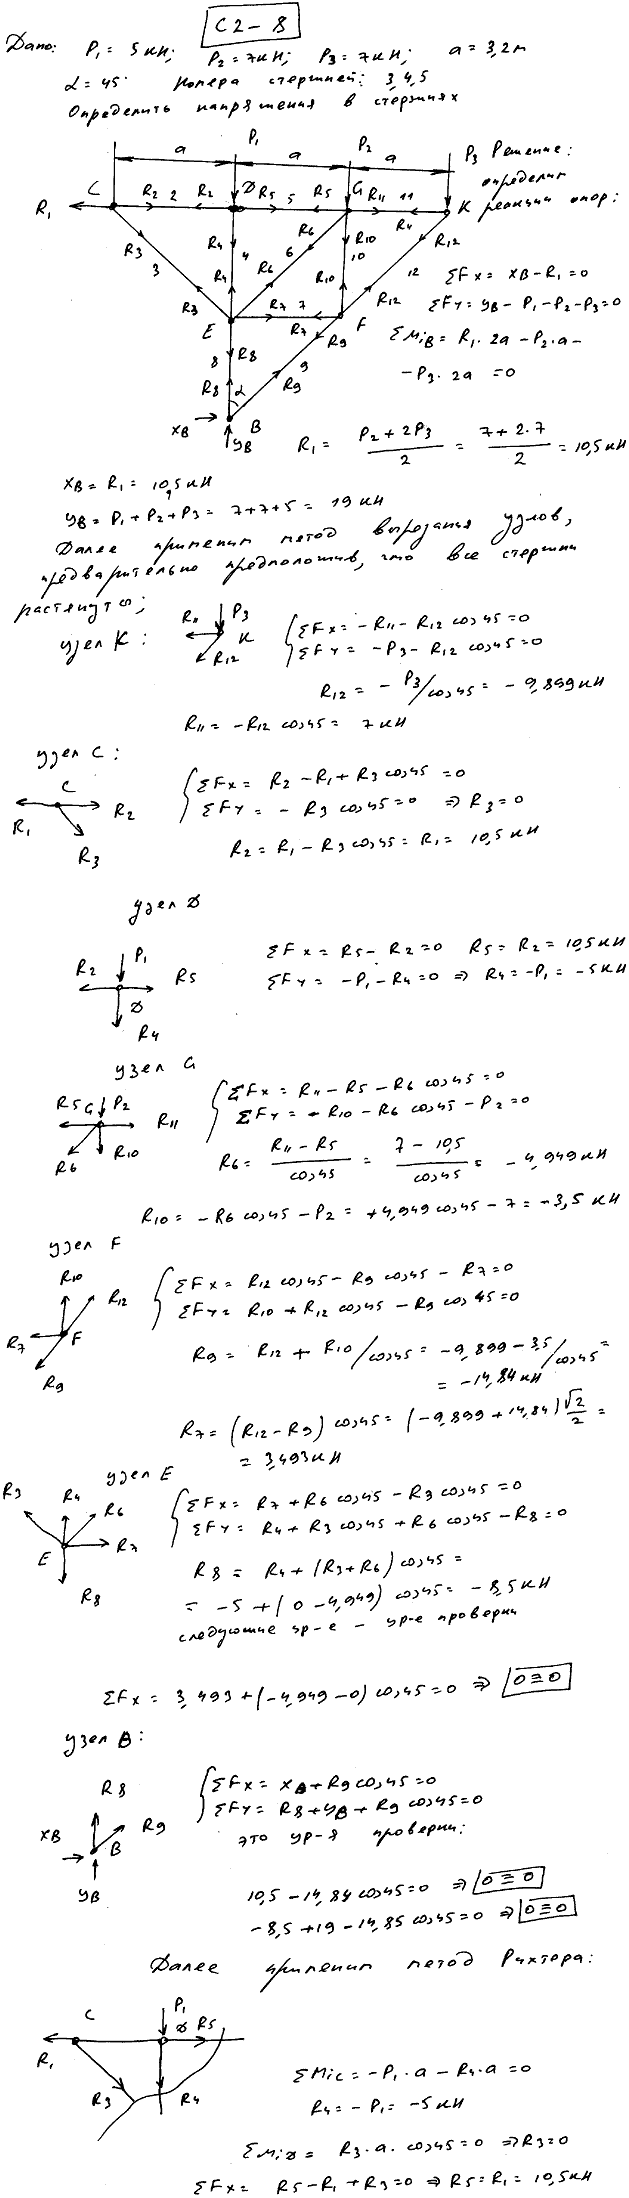 С2-8
Дано: P1 = 5 кН; P2 = 7 кН; P3 = 7 кН; a = 3,2 м
α = 45° Номера стержней: 3,4,5
Определить напряжения в стержнях
P1 P2
a a a P3 Решение:
определим
C D G K реакции опор:
R1 R2 2 R2 R5 5 R5 R11 11 R4
R3 R4 4 R6 R10 R12
3 R6 6 10 12
R3 R4 R7 7 R10 R12
E R7 F
R9
8 R8 9
R8 α R9
XB YB B
ΣFx = XB - R1 = 0
ΣFy = YB - P1 - P2 - P3 = 0
ΣMiB = R1 · 2a - P2 · a -
- P3 · 2a = 0
R1 = P2 + 2P3 / 2 = 7 + 2·7 / 2 = 10,5 кН
XB = R1 = 10,5 кН
YB = P1 + P2 + P3 = 7+7+5 = 19 кН
Далее применим метод вырезания узлов,
предварительно предположив, что все стержни
растянуты;
узел K: R11 P3 K R12
ΣFx = - R11 - R12 cos45 = 0
ΣFy = - P3 - R12 cos45 = 0
R12 = - P3/cos45 = - 9,899 кН
R11 = - R12 cos45 = 7 кН
узел C:
C R1 R2 R3
ΣFx = R2 - R1 + R3 cos45 = 0
ΣFy = - R3 cos45 = 0 ⇒ R3 = 0
R2 = R1 - R3 cos45 = R1 = 10,5 кН
узел D
R2 P1 R5 D R4
ΣFx = R5 - R2 = 0 R5 = R2 = 10,5 кН
ΣFy = - P1 - R4 = 0 ⇒ R4 = - P1 = - 5 кН
узел G
R5 G P2 R11 R6 R10
ΣFx = R11 - R5 - R6 cos45 = 0
ΣFy = - R10 - R6 cos45 - P2 = 0
R6 = R11 - R5 / cos45 = 7 - 10,5 / cos45 = - 4,949 кН
R10 = - R6 cos45 - P2 = +4,949 cos45 - 7 = - 3,5 кН
узел F
R10 R12 R7 F R9
ΣFx = R12 cos45 - R9 cos45 - R7 = 0
ΣFy = R10 + R12 cos45 - R9 cos45 = 0
R9 = R12 + R10/cos45 = - 9,899 - 3,5/cos45 =
= - 14,84 кН
R7 = (R12 - R9) cos45 = (-9,899 + 14,84) √2/2 =
= 3,493 кН
узел E
R3 R4 R6 E R7 R8
ΣFx = R7 + R6 cos45 - R3 cos45 = 0
ΣFy = R4 + R3 cos45 + R6 cos45 - R8 = 0
R8 = R4 + (R3 + R6) cos45 =
= - 5 + (0 - 4,949) cos45 = - 8,5 кН
следующие ур-е - ур-е проверки
ΣFx = 3,493 + (-4,949 - 0) cos45 = 0 ⇒ 0 ≡ 0
узел B:
R8 XB R9 B YB
ΣFx = XB + R9 cos45 = 0
ΣFy = R8 + YB + R9 cos45 = 0
это ур-я проверки:
10,5 - 14,84 cos45 = 0 ⇒ 0 ≡ 0
- 8,5 + 19 - 14,85 cos45 = 0 ⇒ 0 ≡ 0
Далее применим метод Риттера:
C P1 D R5 R1 R3 R4
ΣMiC = - P1 · a - R4 · a = 0
R4 = - P1 = - 5 кН
ΣMiD = R3 · a · cos45 = 0 ⇒ R3 = 0
ΣFx = R5 - R1 + R3 = 0 ⇒ R5 = R1 = 10,5 кН